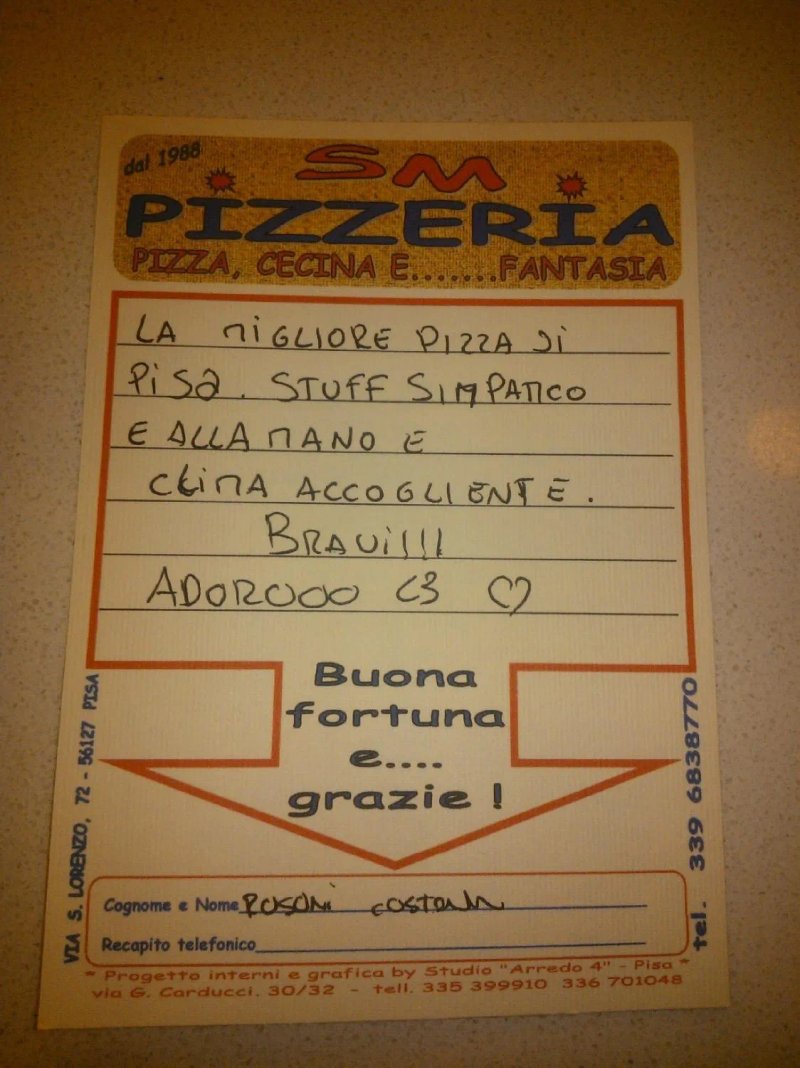 dal 1988
SM
PIZZERIA
PIZZA, CECINA E.......FANTASIA
LA MIGLIORE PIZZA DI
PISA. STUFF SIMPATICO
E ALLA MANO E
CLIMA ACCOGLIENTE.
BRAVI!!!
ADOROOO <3 ♡
Buona
fortuna
e....
grazie !
VIA S. LORENZO, 72 - 56127 PISA
tel. 339 6838770
Cognome e Nome
Recapito telefonico
* Progetto interni e grafica by Studio "Arredo 4" - Pisa *
via G. Carducci. 30/32 - tell. 335 399910 336 701048